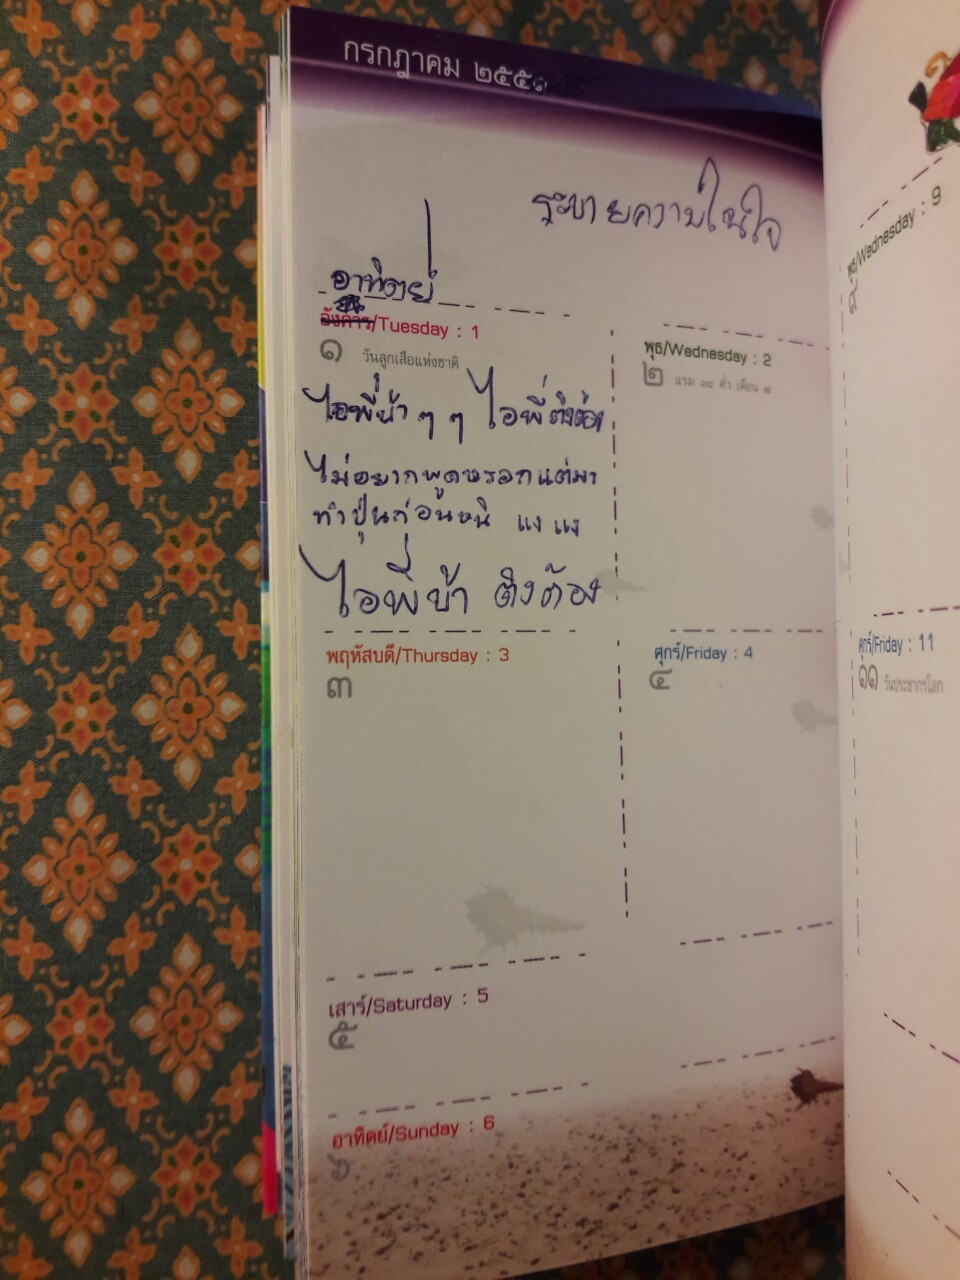 กรกฎาคม ๒๕๕๑
ระบายความในใจ
อาทิตย์
อังคาร/Tuesday : 1
๑ วันลูกเสือแห่งชาติ
ไอพี่บ้า ๆ ๆ ไอพี่ติงต้อง
ไม่อยากพูดหรอกแต่มา
ทำปุ่นก่อนหนิ แง แง
ไอพี่บ้า ติงต้อง
พุธ/Wednesday : 2
๒ แรม ๑๔ ค่ำ เดือน ๗
พฤหัสบดี/Thursday : 3
๓
ศุกร์/Friday : 4
๔
เสาร์/Saturday : 5
๕
อาทิตย์/Sunday : 6
๖
พุธ/Wednesday : 9
๙
ศุกร์/Friday : 11
๑๑ วันประชากรโลก